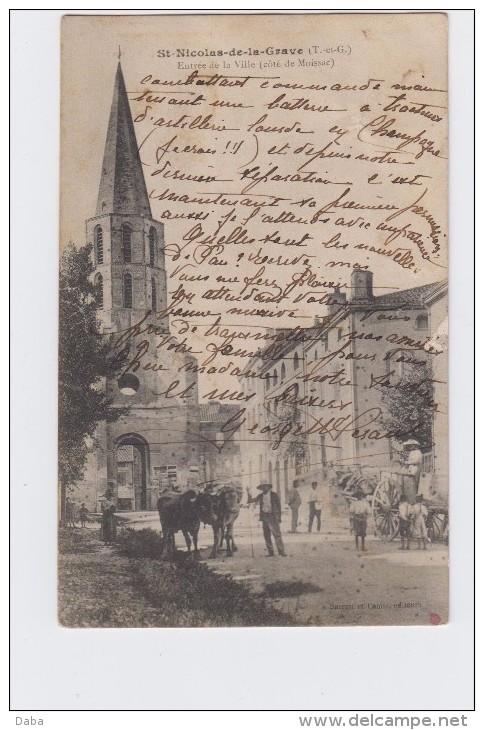 St-Nicolas-de-la-Grave (T.-et-G.)
Entrée de la Ville (côté de Moissac)
combattant commande main
tenant une batterie à tracteurs
d'artillerie lourde en Champagne
(je crois !!) et depuis notre
dernière séparation c'est
maintenant sa première permission
aussi je l'attends avec impatience
Quelles sont les nouvelles
de Pau? écrivez moi
vous me ferez plaisir
en attendant votre
bonne missive vous
prie de transmettre nos amitiés
à votre famille pour vous
chère madame notre
et mes baisers
Georgette
Daba
http://www.delcampe.net